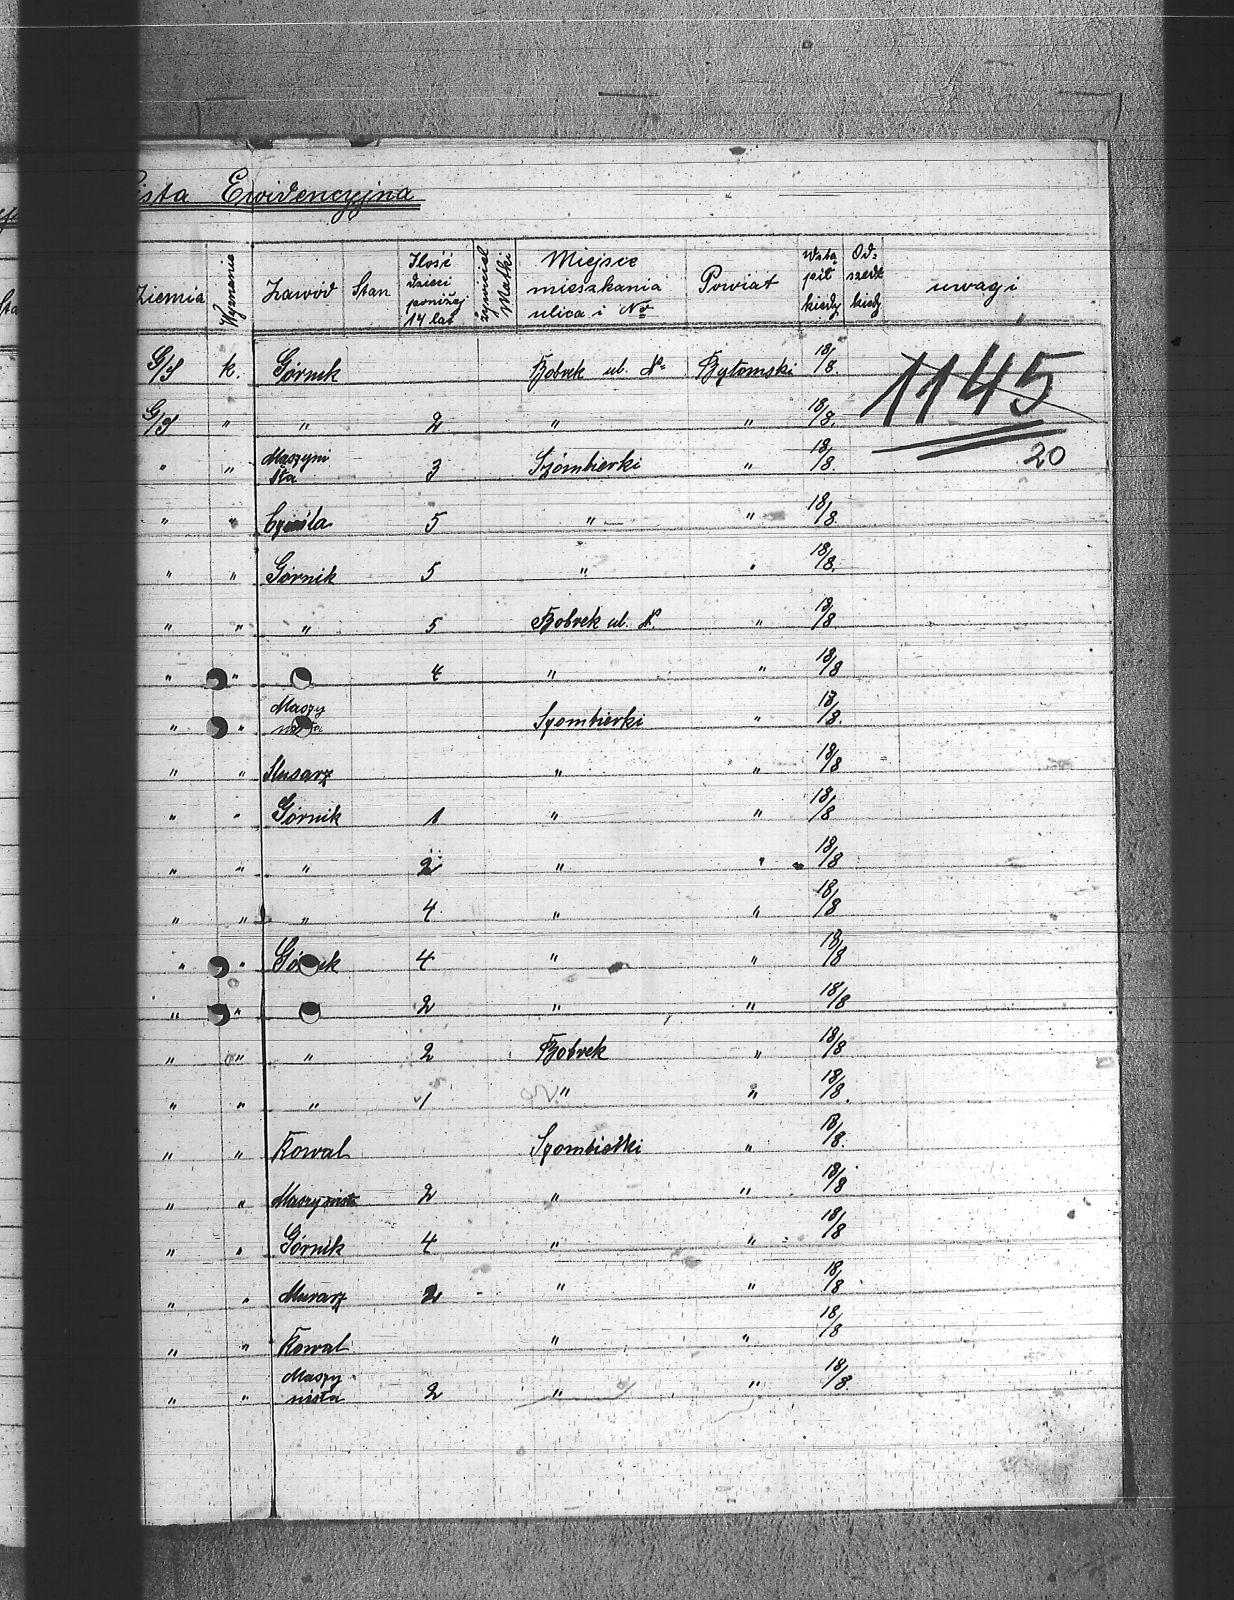 ista Ewidencyjna
Ziemia Wyznanie Zawód Stan Ilość dzieci poniżej 14 lat żywiciel Matki Miejsce mieszkania ulica i No Powiat Wstąpił kiedy Odszedł kiedy uwagi
G/S k. Górnik Bobrek ul. No Bytomski 18/8. 1145
G/S " " 2 " " 18/8.
" " Maszynista 3 Szombierki " 18/8. 20
" " Cieśla 5 " " 18/8.
" " Górnik 5 " " 18/8.
" " " 5 Bobrek ul. N. " 18/8
" " 4 " " 18/8
" " Maszynista Szombierki " 18/8.
" " Slusarz " " 18/8
" " Górnik 1 " " 18/8
" " " 2 " " 18/8
" " " 4 " " 18/8
" " Górnik 4 " " 18/8
" " 2 " " 18/8
" " " 2 Bobrek " 18/8
" " " 1 " " 18/8.
" " Kowal Szombierki " 18/8.
" " Maszynista 2 " " 18/8
" " Górnik 4 " " 18/8
" " Murarz 2 " " 18/8
" " Kowal " " 18/8
" " Maszynista 2 " " 18/8.